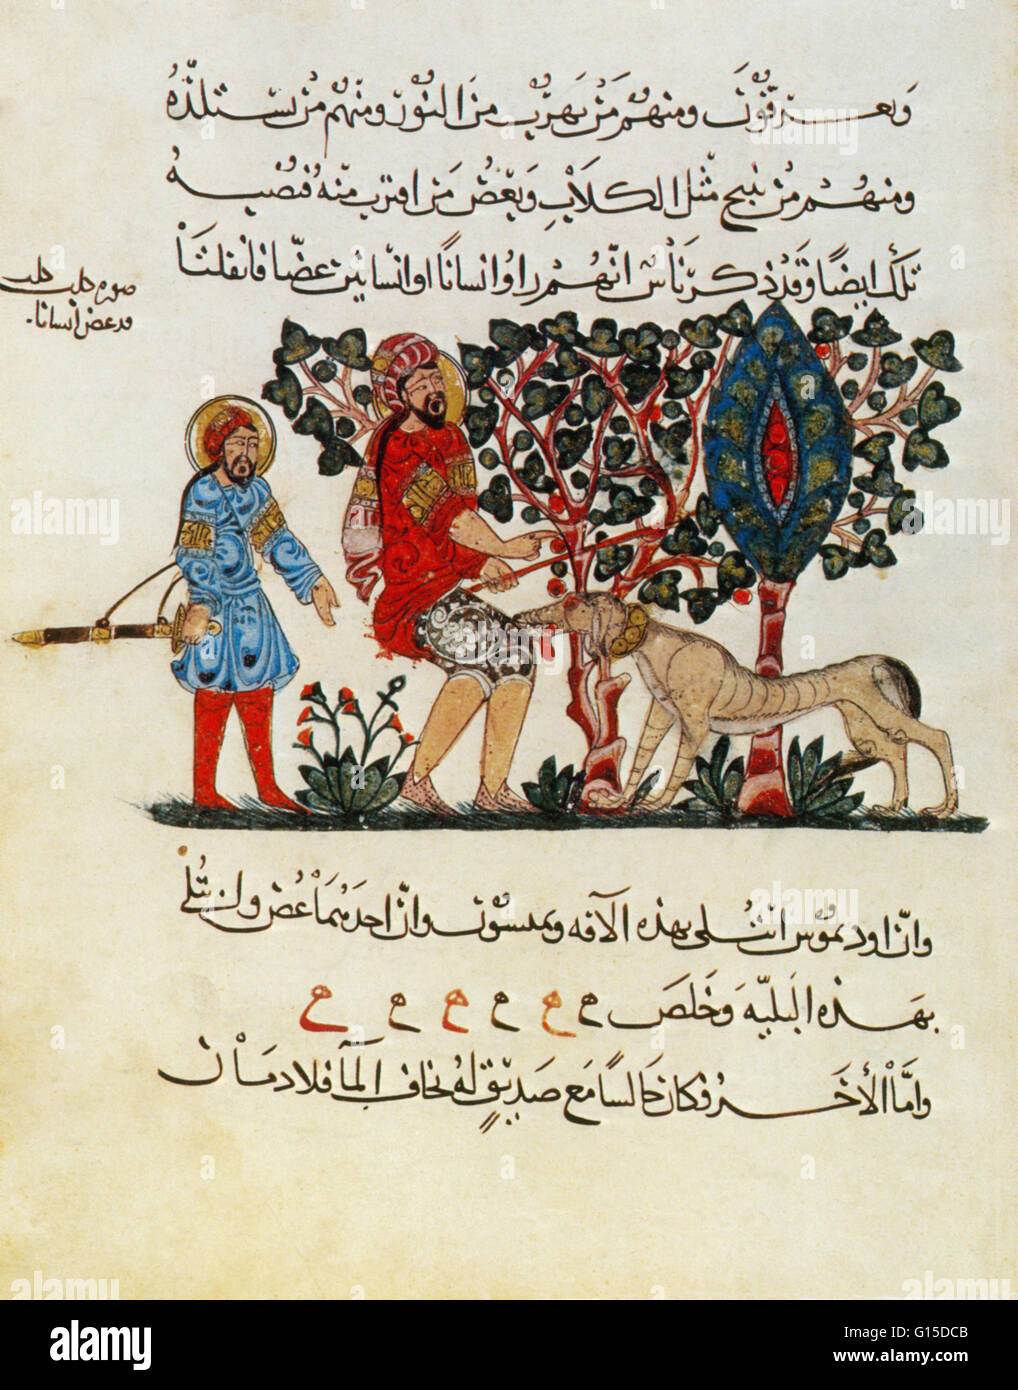 وَيعــرقُونَ ومنهمْ مَنْ يَهربُ مِنَ النُّورِ ومنهمْ مَنْ يستلذّهُ
ومنهُمْ مَنْ ينبح مثْل الكلابِ وَبعْضُ مَن اقترب منهُ فتصيبهُ
تلكَ ايضًا وَقدْ ذكر نَاسٌ انّهُمْ راوُا انسانًا او انسانيْن عضّا فانفلتَا
صوره كلب كلب
قد عض انسانا.
وانّ اوديموُس ابتُلى بهذه الآفه وانّ احدهُمَا عُض ولم يُبتلَ
بهَـذه البَليّه وَخَلصَ ه ه ه ه ه ه
وامّا الأخَــر فكان جَالسًا مَع صَديقٍ لهُ يخاف الماَ فلا
alamy
Image ID: G15DCB
www.alamy.com